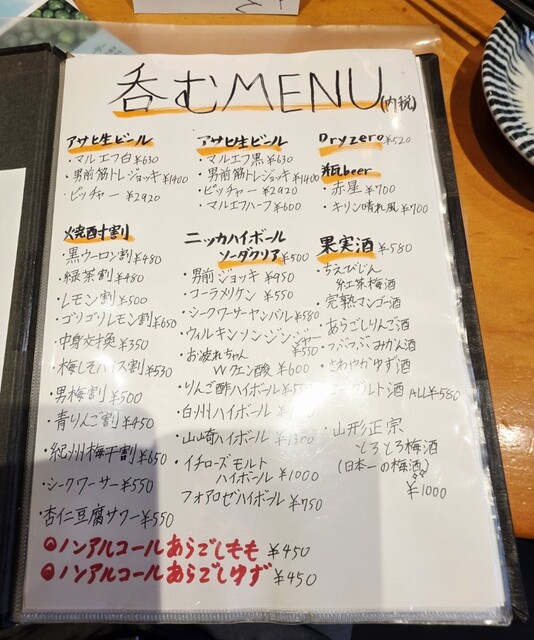 呑むMENU(内税)
アサヒ生ビール
・マルエフ白 ¥630
・男前筋トレジョッキ¥1400
・ピッチャー ¥2920
アサヒ生ビール
・マルエフ黒 ¥630
・男前筋トレジョッキ¥1400
・ピッチャー ¥2920
・マルエフハーフ ¥600
Dryzero ¥520
瓶beer
・赤星 ¥700
・キリン晴れ風 ¥700
焼酎割
・黒ウーロン割 ¥480
・緑茶割 ¥480
・レモン割 ¥500
・ゴリゴリレモン割 ¥650
・中身交換 ¥350
・梅しそハイス割 ¥530
・男梅割 ¥500
・青りんご割 ¥450
・紀州梅干割 ¥650
・シークワーサー ¥550
・杏仁豆腐サワー ¥550
ニッカハイボール
ソーダクリア ¥500
・男前ジョッキ ¥950
・コーラメリケン ¥550
・シークワーサーヤンバル ¥580
・ウィルキンソンジンジャー ¥550
・お疲れちゃん
Wクエン酸 ¥600
・りんご酢ハイボール
・白州ハイボール
・山崎ハイボール
・イチローズモルト
ハイボール ¥1000
・フォアロゼハイボール ¥750
果実酒 ¥580
・ちえびじん
紅茶梅酒
・完熟マンゴー酒
・あらごしりんご酒
・つぶつぶみかん酒
・さわやかゆず酒
ヨーグルト酒 ALL¥580
・山形正宗
とろとろ梅酒
(日本一の梅酒)
¥1000
ノンアルコールあらごしもも ¥450
ノンアルコールあらごしゆず ¥450